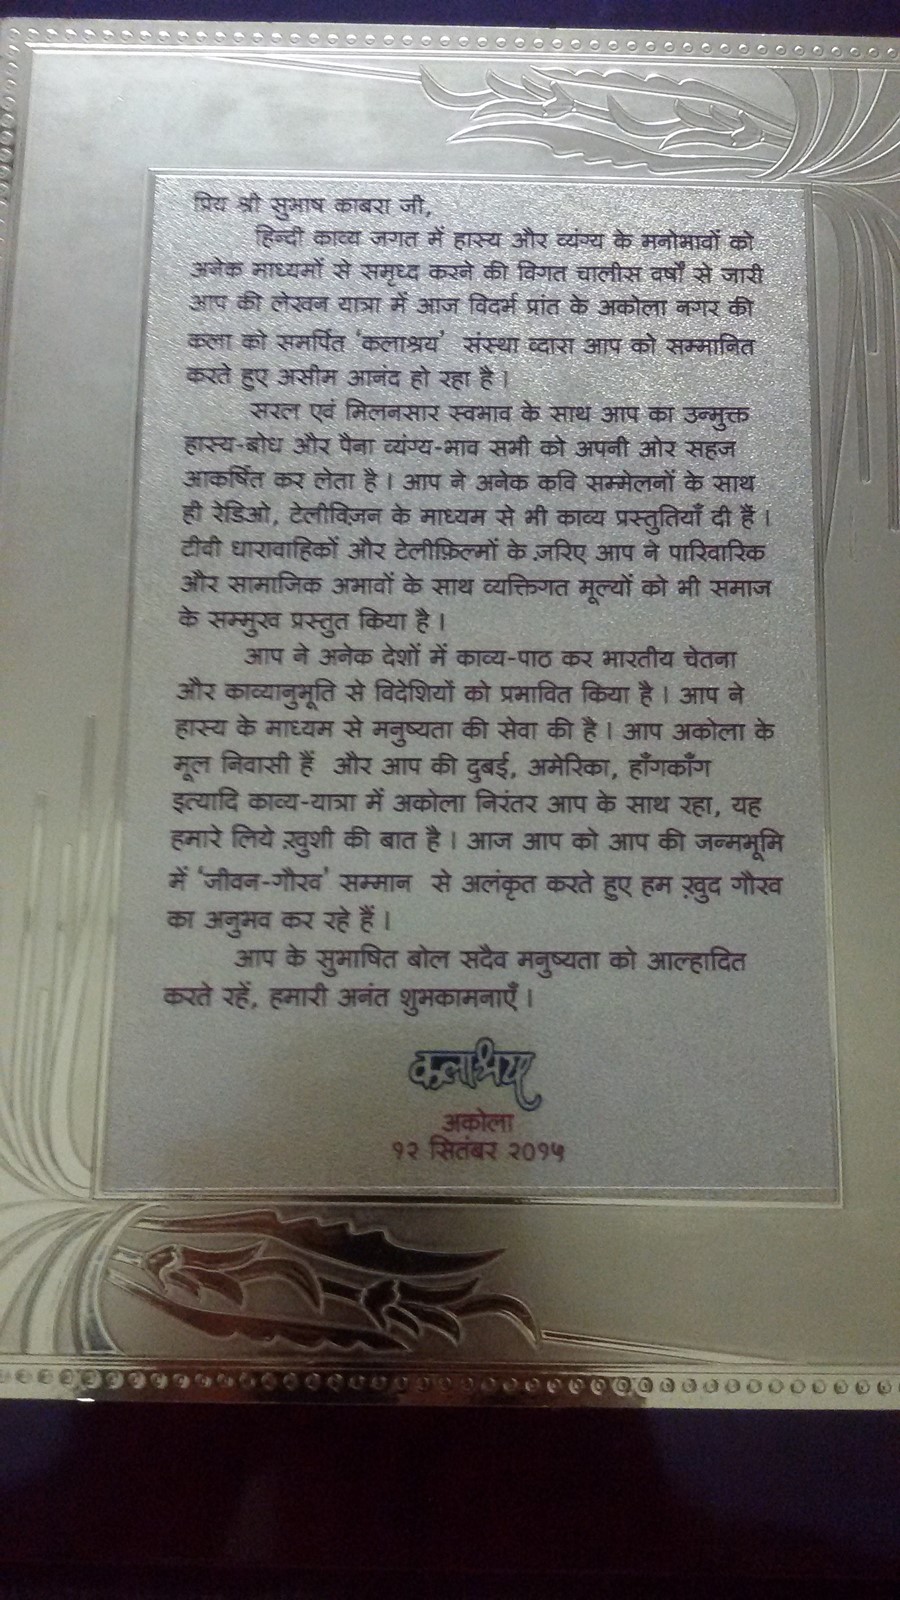 प्रिय श्री सुभाष काबरा जी,
हिन्दी काव्य जगत में हास्य और व्यंग्य के मनोभावों को
अनेक माध्यमों से समृध्द करने की विगत चालीस वर्षों से जारी
आप की लेखन यात्रा में आज विदर्भ प्रांत के अकोला नगर की
कला को समर्पित 'कलाश्रय' संस्था व्दारा आप को सम्मानित
करते हुए असीम आनंद हो रहा है ।
सरल एवं मिलनसार स्वभाव के साथ आप का उन्मुक्त
हास्य-बोध और पैना व्यंग्य-भाव सभी को अपनी ओर सहज
आकर्षित कर लेता है । आप ने अनेक कवि सम्मेलनों के साथ
ही रेडिओ, टेलीविज़न के माध्यम से भी काव्य प्रस्तुतियाँ दी हैं ।
टीवी धारावाहिकों और टेलीफ़िल्मों के ज़रिए आप ने पारिवारिक
और सामाजिक अभावों के साथ व्यक्तिगत मूल्यों को भी समाज
के सम्मुख प्रस्तुत किया है ।
आप ने अनेक देशों में काव्य-पाठ कर भारतीय चेतना
और काव्यानुभूति से विदेशियों को प्रभावित किया है । आप ने
हास्य के माध्यम से मनुष्यता की सेवा की है । आप अकोला के
मूल निवासी हैं और आप की दुबई, अमेरिका, हाँगकाँग
इत्यादि काव्य-यात्रा में अकोला निरंतर आप के साथ रहा, यह
हमारे लिये ख़ुशी की बात है । आज आप को आप की जन्मभूमि
में 'जीवन-गौरव' सम्मान से अलंकृत करते हुए हम ख़ुद गौरव
का अनुभव कर रहे हैं ।
आप के सुभाषित बोल सदैव मनुष्यता को आल्हादित
करते रहें, हमारी अनंत शुभकामनाएँ ।
कलाश्रय
अकोला
१२ सितंबर २०१५